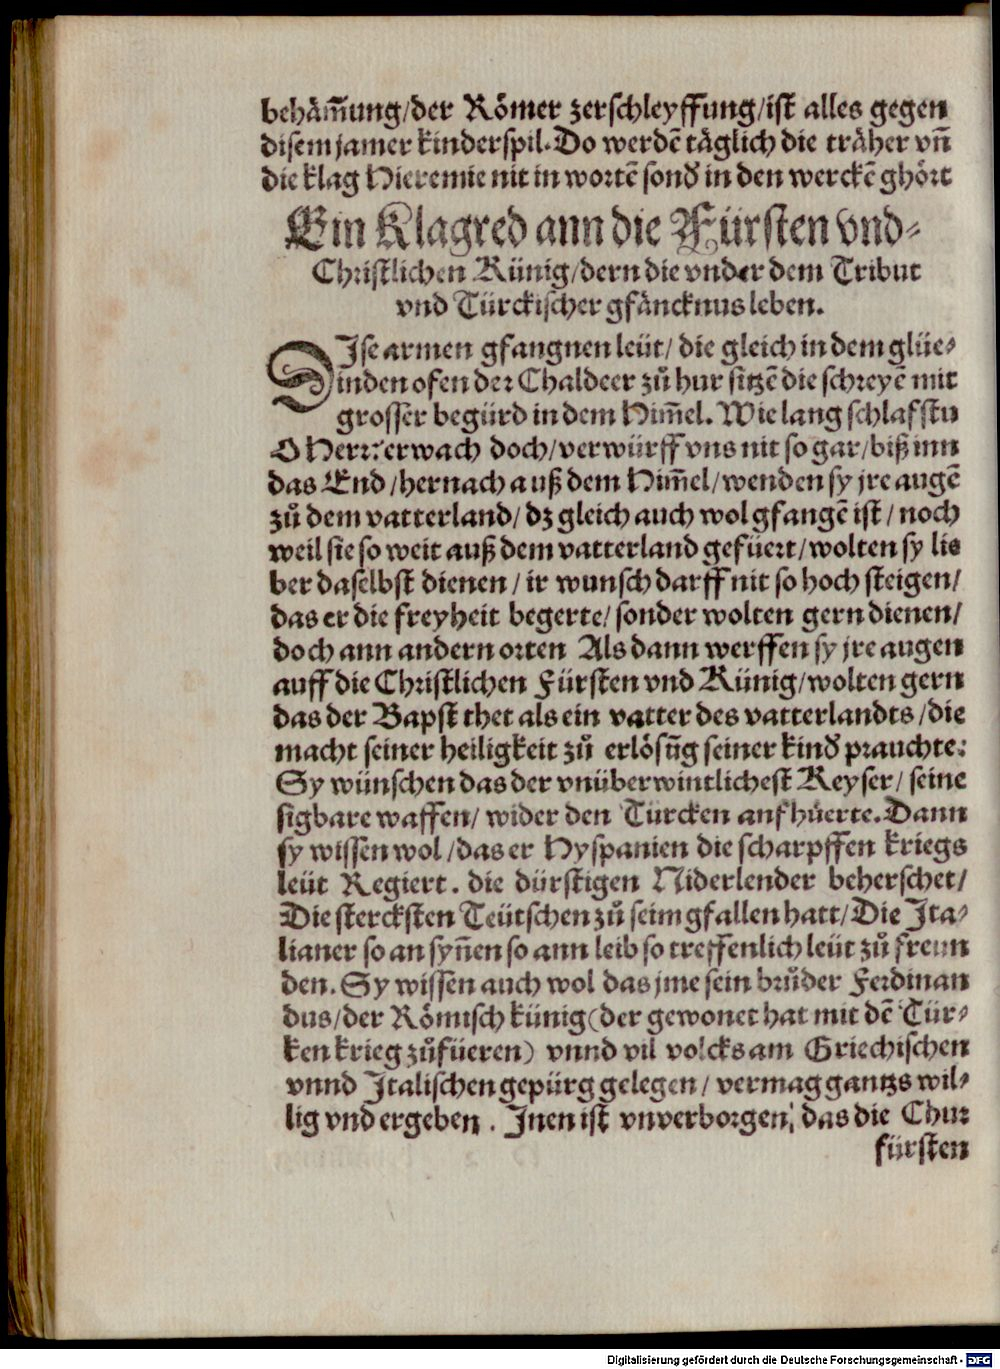 behäm̃ung/der Römer zerschleyffung/ist alles gegen
disem jamer kinderspil. Do werdẽ täglich die träher vñ
die klag Hieremie nit in wortẽ sond̕ in den werckẽ ghört
Ein Klagred ann die Fürsten vnd-
Christlichen Künig/dern die vnder dem Tribut
vnd Türckischer gfäncknus leben.
DIse armen gfangnen leüt/ die gleich in dem glüe-
inden ofen der Chaldeer zů hur sitzẽ die schreyẽ mit
grosser begürd in dem Him̃el. Wie lang schlafstu
O Herr? erwach doch/verwürff vns nit so gar/biß inn
das End/hernach auß dem Him̃el/wenden sy jre augẽ
zů dem vatterland/ dz gleich auch wol gfangẽ ist/ noch
weil sie so weit auß dem vatterland gefüert/wolten sy lie
ber daselbst dienen/ ir wunsch darff nit so hoch steigen/
das er die freyheit begerte/ sonder wolten gern dienen/
doch ann andern orten Als dann werffen sy jre augen
auff die Christlichen Fürsten vnd Künig/wolten gern
das der Bapst thet als ein vatter des vatterlandts/die
macht seiner heiligkeit zů erlösũg seiner kind̕ prauchte:
Sy wünschen das der vnüberwintlichest Keyser/ seine
sigbare waffen/ wider den Türcken anfhüerte. Dann
sy wissen wol/das er Hyspanien die scharpffen kriegs
leüt Regiert. die dürstigen Niderlender beherschet/
Die stercksten Teütschen zů seim gfallen hatt/Die Ita-
lianer so an syñen so ann leib so treffenlich leüt zů freun
den. Sy wissen auch wol das jme sein brůder Ferdinan
dus/der Römisch künig(der gewonet hat mit dẽ Tür-
ken krieg zůfüeren) vnnd vil volcks am Griechischen
vnnd Italischen gepürg gelegen/ vermag gantzs wil-
lig vnd ergeben. Inen ist vnverborgen, das die Chur
fürsten
Digitalisierung gefördert durch die Deutsche Forschungsgemeinschaft - DFG